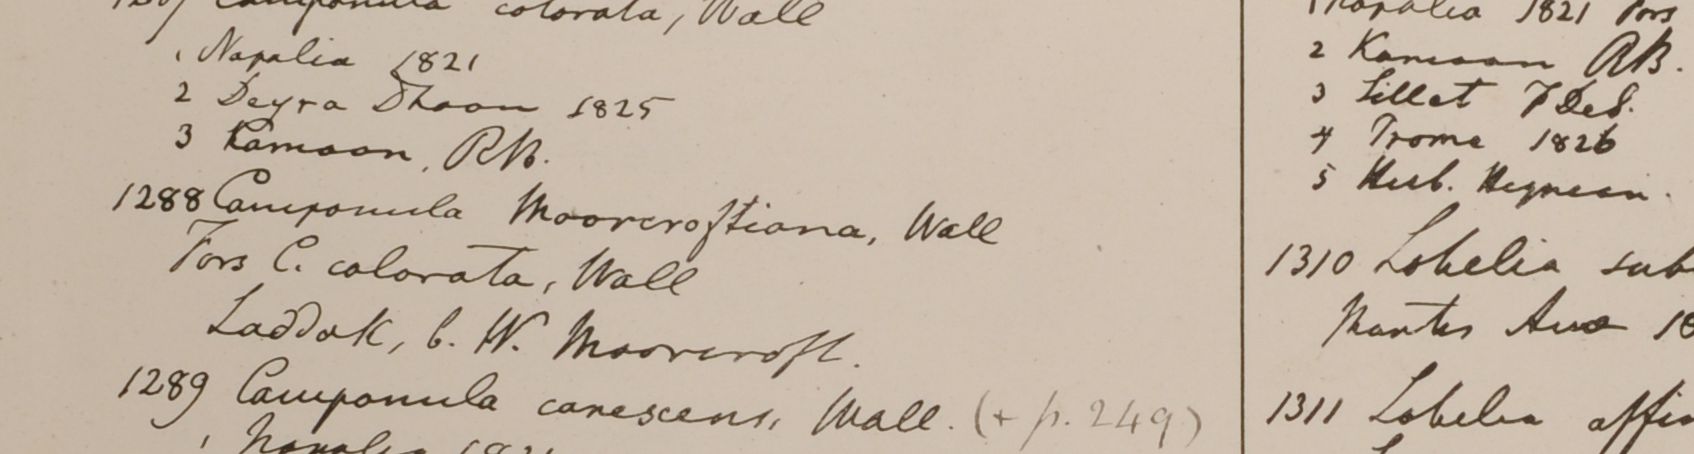 1287 Campanula colorata, Wall
1 Napalia 1821
2 Deyra Dhoon 1825
3 Kamaon, RB.
1288 Campanula Moorcroftiana, Wall
Fors C. colorata, Wall
Laddak, c. W. Moorcroft.
1289 Campanula canescens, Wall. (+ p. 249)
1 Napalia 1821
Napalia 1821 Fors
2 Kamaon RB.
3 Sillet F De S.
4 Prome 1826
5 Herb. Heynean.
1310 Lobelia sub
Montes Ava 18
1311 Lobelia affin